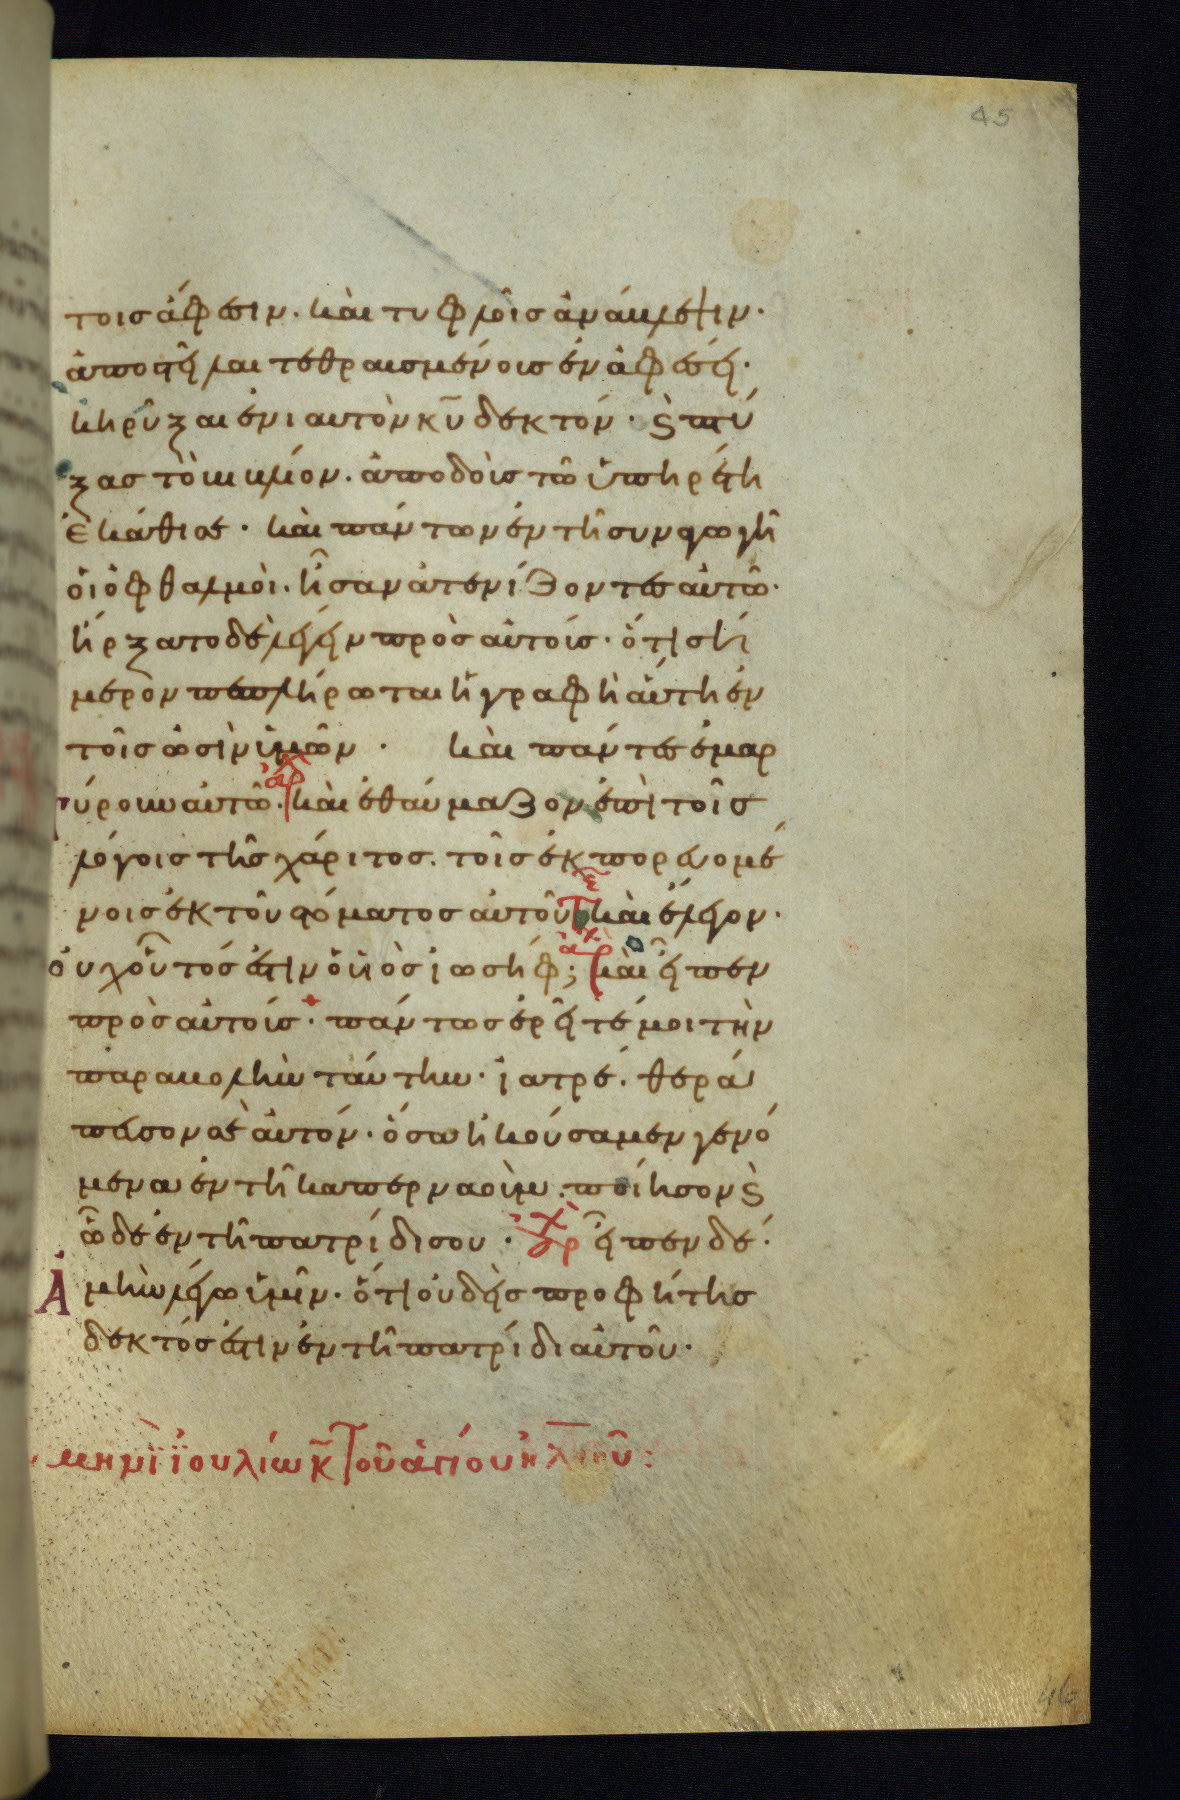 45
τοις ἄφεσιν. καὶ τυφλοῖς ἀνάβλεψιν.
ἀποστεῖλαι τεθραυσμένους ἐν ἀφέσει.
κηρῦξαι ἐνιαυτὸν κῡ δεκτόν. ϗ πτύ
ξας τὸ βιβλίον. ἀποδοὺς τῶ ὑπηρέτη
ἐκάθισε. καὶ πάντων ἐν τῆ συναγωγῆ
οἱ ὀφθαλμοὶ. ἦσαν ἀτενίζοντες αὐτῶ.
ἤρξατο δὲ λέγειν πρὸς αὐτούς. ὅτι σή
μερον πεπλήρωται ἡ γραφὴ αὕτη ἐν
τοῖς ὠσὶν ὑμῶν. καὶ πάντες ἐμαρ
τύρουν αὐτῶ. καὶ ἐθαύμαζον ἐπὶ τοῖς
λόγοις τῆς χάριτος. τοῖς ἐκπορευομέ
νοις ἐκ τοῦ στόματος αὐτοῦ καὶ ἔλεγον.
οὐχ οὗτός ἐστιν ὁ υἱὸς ἰωσήφ; καὶ εἶπεν
πρὸς αὐτούς. πάντως ἐρεῖτέ μοι τὴν
παραβολὴν ταύτην. ἰατρέ. θερά
πευσον σεαυτόν. ὅσα ἠκούσαμεν γενό
μενα ἐν τῆ καπερναοὺμ. ποίησον ϗ
ὧδε ἐν τῆ πατρίδι σου. εἶπεν δέ.
Ἀμὴν λέγω ὑμῖν. ὅτι οὐδεὶς προφήτης
δεκτός ἐστιν ἐν τῆ πατρίδι αὐτοῦ.
μηνὶ ἰουλίω κ̄ τοῦ ἁγίου ἠλιοῦ: